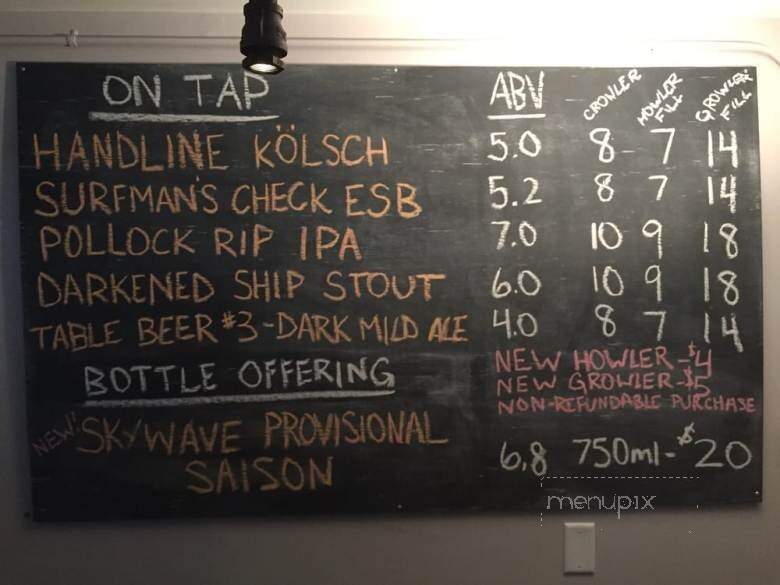 ON TAP ABV CROWLER HOWLER FILL GROWLER FILL
HANDLINE KÖLSCH 5.0 8 7 14
SURFMAN'S CHECK ESB 5.2 8 7 14
POLLOCK RIP IPA 7.0 10 9 18
DARKENED SHIP STOUT 6.0 10 9 18
TABLE BEER #3-DARK MILD ALE 4.0 8 7 14
NEW HOWLER-$4
BOTTLE OFFERING NEW GROWLER-$5
NON-REFUNDABLE PURCHASE
NEW! SKYWAVE PROVISIONAL
SAISON 6.8 750ml-$20
menupix